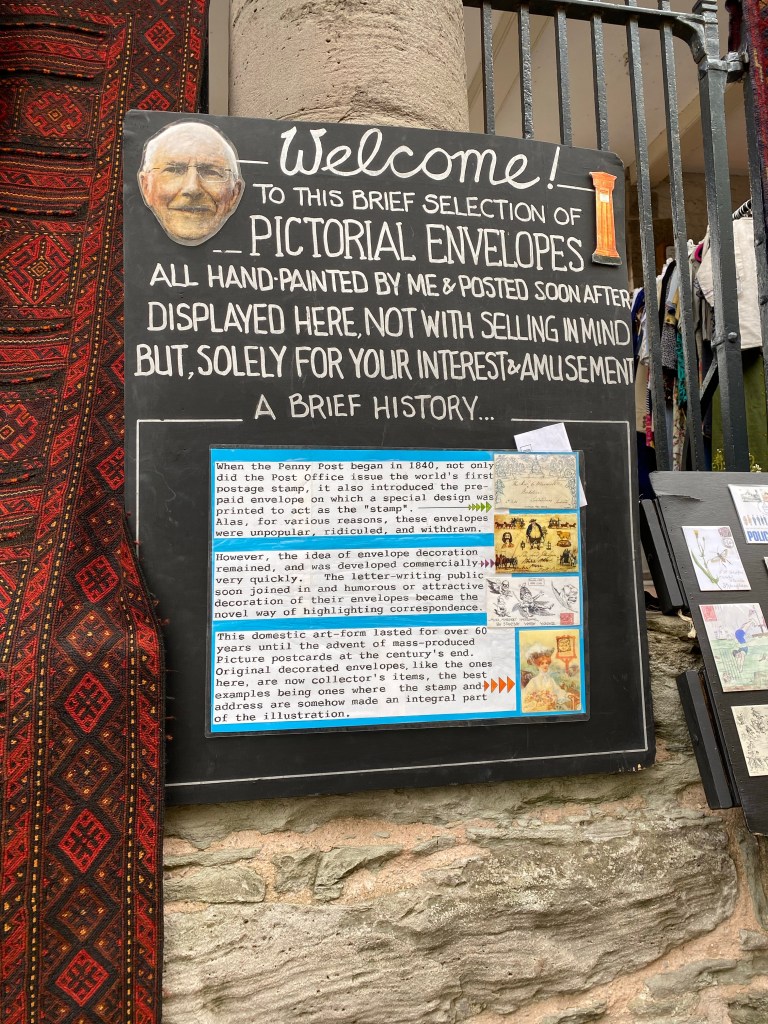 Welcome!
TO THIS BRIEF SELECTION OF
PICTORIAL ENVELOPES
ALL HAND-PAINTED BY ME & POSTED SOON AFTER
DISPLAYED HERE, NOT WITH SELLING IN MIND
BUT, SOLELY FOR YOUR INTEREST & AMUSEMENT
A BRIEF HISTORY...
When the Penny Post began in 1840, not only
did the Post Office issue the world's first
postage stamp, it also introduced the pre-
paid envelope on which a special design was
printed to act as the "stamp".
Alas, for various reasons, these envelopes
were unpopular, ridiculed, and withdrawn.
However, the idea of envelope decoration
remained, and was developed commercially
very quickly. The letter-writing public
soon joined in and humorous or attractive
decoration of their envelopes became the
novel way of highlighting correspondence.
This domestic art-form lasted for over 60
years until the advent of mass-produced
Picture postcards at the century's end.
Original decorated envelopes, like the ones
here, are now collector's items, the best
examples being ones where the stamp and
address are somehow made an integral part
of the illustration.